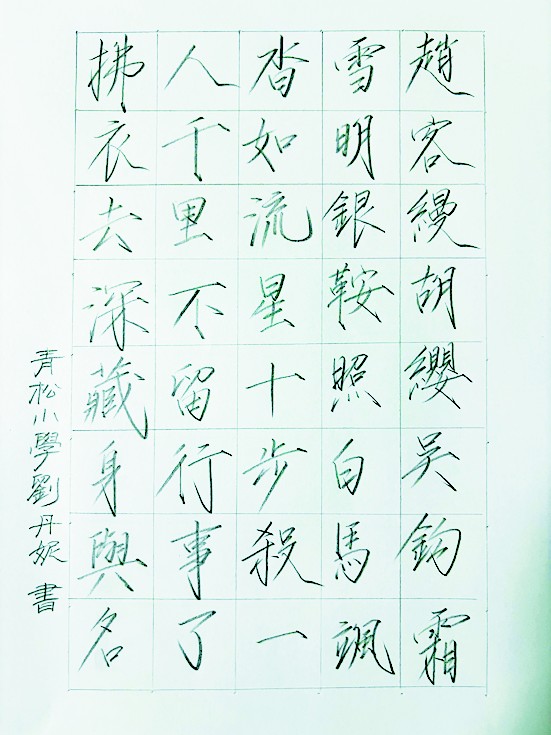 趙客縵胡纓吳鉤霜
雪明銀鞍照白馬颯
沓如流星十步殺一
人千里不留行事了
拂衣去深藏身與名
青松小學劉丹妮 書